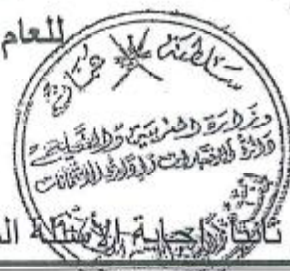 للعام
سلطنة عمان
وزارة التربية والتعليم
دائرة الاختبارات وإدارة الامتحانات
ثانياً: إجابة الأسئلة